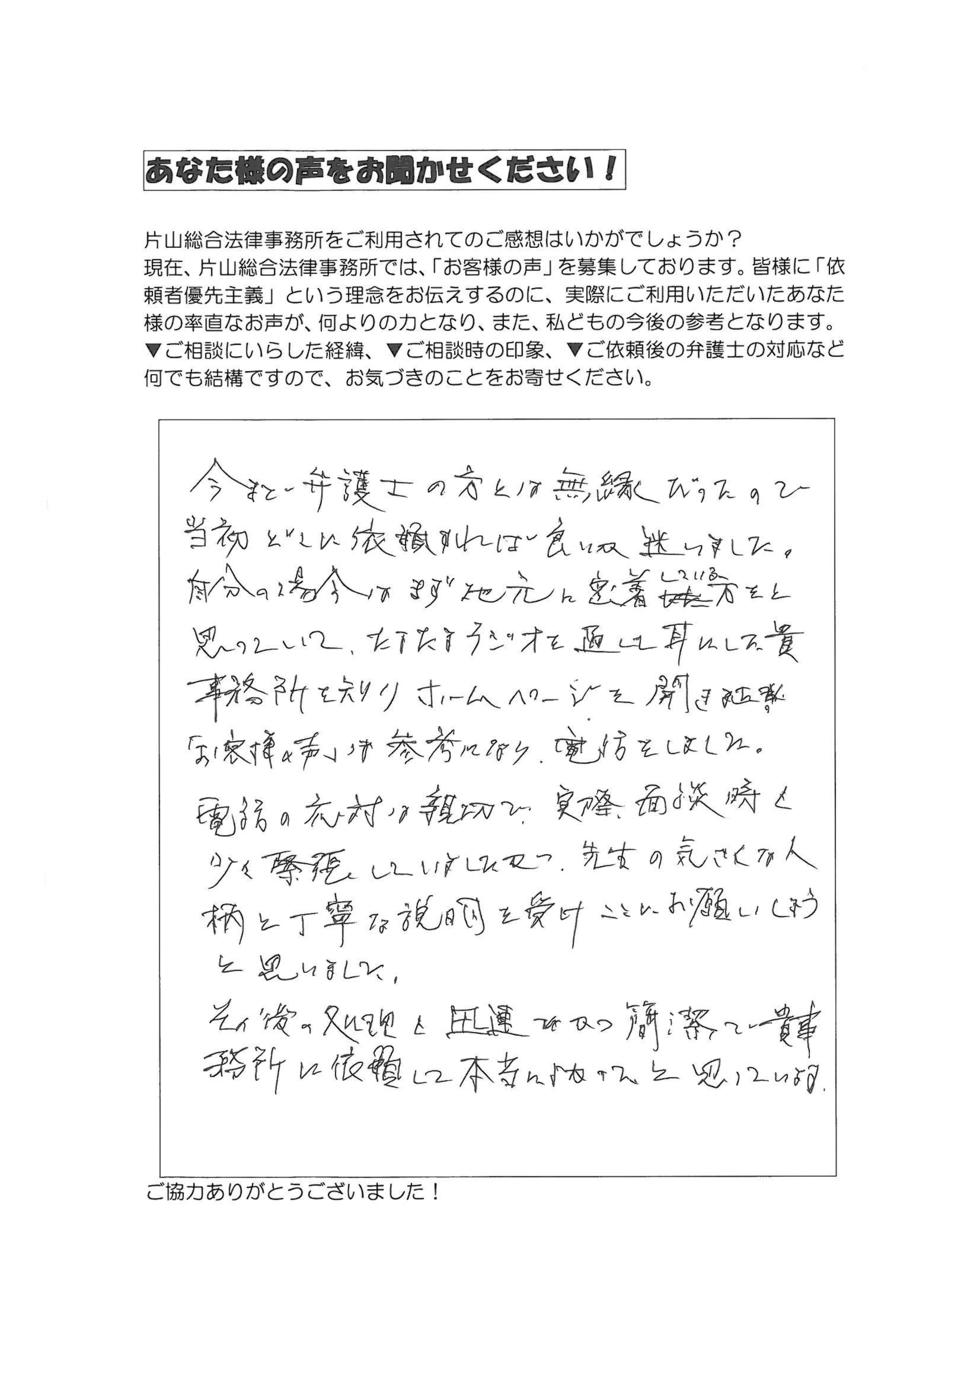 あなた様の声をお聞かせください！
片山総合法律事務所をご利用されてのご感想はいかがでしょうか？
現在、片山総合法律事務所では、「お客様の声」を募集しております。皆様に「依
頼者優先主義」という理念をお伝えするのに、実際にご利用いただいたあなた
様の率直なお声が、何よりの力となり、また、私どもの今後の参考となります。
▼ご相談にいらした経緯、▼ご相談時の印象、▼ご依頼後の弁護士の対応など
何でも結構ですので、お気づきのことをお寄せください。
今まで弁護士の方とは無縁だったので
当初どこに依頼すれば良いか迷いました。
自分の場合はまず地元に密着している方をと
思っていて、たまたまラジオを通して耳にした貴
事務所を知りホームページを開き
「お客様の声」は参考になり、電話をしました。
電話の応対は親切で、実際、面談時も
少々緊張していましたが、先生の気さくな人
柄と丁寧な説明を受け ここにお願いしよう
と思いました。
その後の処理も迅速でかつ簡潔で貴事
務所に依頼して本当によかったと思っています。
ご協力ありがとうございました！